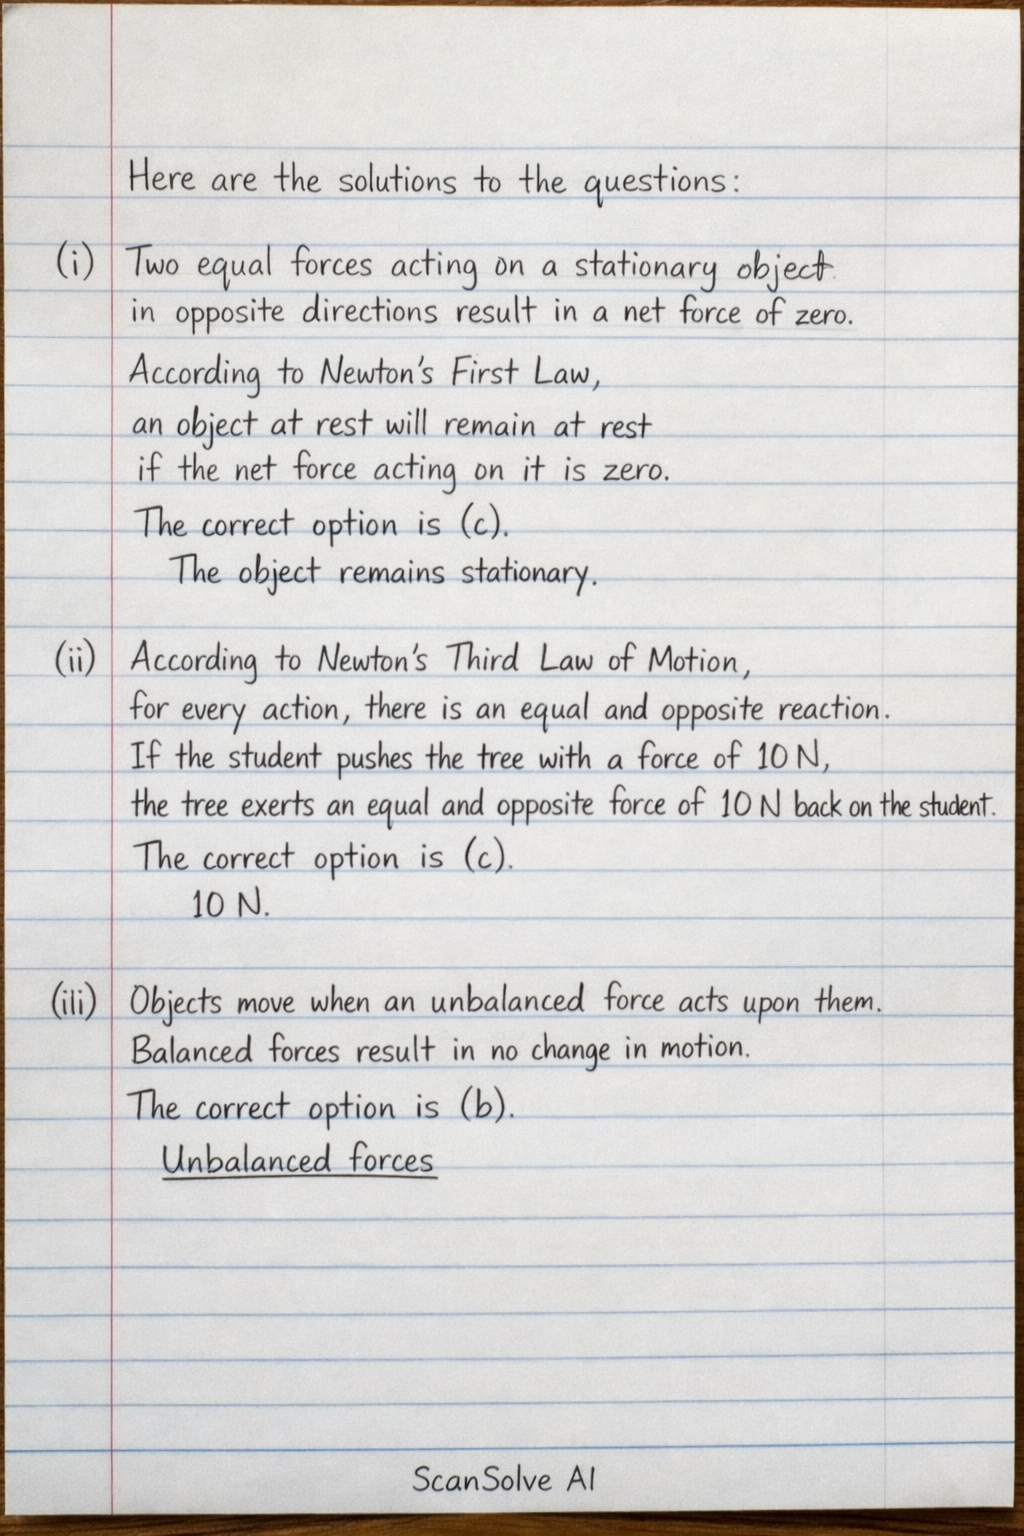 Here are the solutions to the questions:
(i) Two equal forces acting on a stationary object
in opposite directions result in a net force of zero.
According to Newton's First Law,
an object at rest will remain at rest
if the net force acting on it is zero.
The correct option is (c).
The object remains stationary.
(ii) According to Newton's Third Law of Motion,
for every action, there is an equal and opposite reaction.
If the student pushes the tree with a force of 10 N,
the tree exerts an equal and opposite force of 10 N back on the student.
The correct option is (c).
10 N.
(iii) Objects move when an unbalanced force acts upon them.
Balanced forces result in no change in motion.
The correct option is (b).
Unbalanced forces
ScanSolve AI